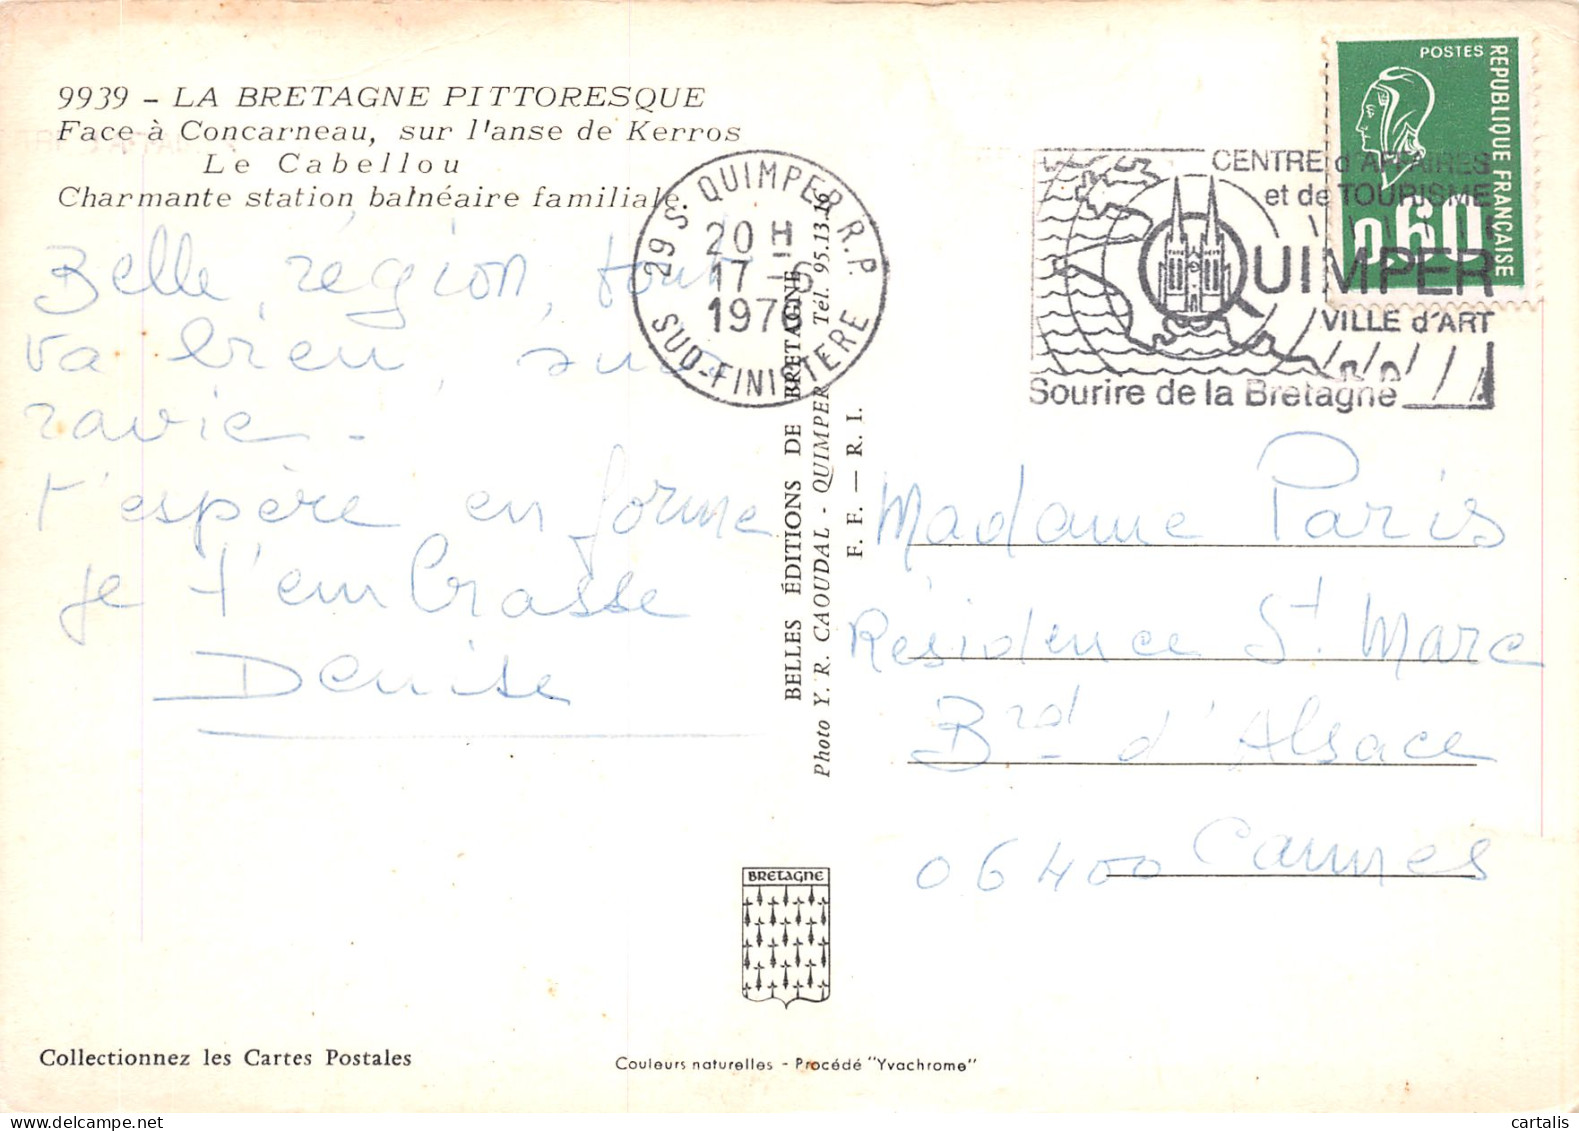 9939 - LA BRETAGNE PITTORESQUE
Face à Concarneau, sur l'anse de Kerros
Le Cabellou
Charmante station balnéaire familiale.
Belle région, tout
va bien, suis
ravie -
t'espère en forme
je t'embrasse
Denise
29 S. QUIMPER R.P.
20 H
17 - 6
1976
SUD-FINISTERE
CENTRE d'AFFAIRES
et de TOURISME
QUIMPER
VILLE d'ART
Sourire de la Bretagne
POSTES
REPUBLIQUE FRANÇAISE
0,60
BELLES ÉDITIONS DE BRETAGNE
Photo Y. R. CAOUDAL - QUIMPER Tél. 95.13.16
F. F. — R. I.
Madame Paris
Résidence St Marc
Brd d'Alsace
06400 Cannes
BRETAGNE
Collectionnez les Cartes Postales
Couleurs naturelles - Procédé "Yvachrome"
cartalis